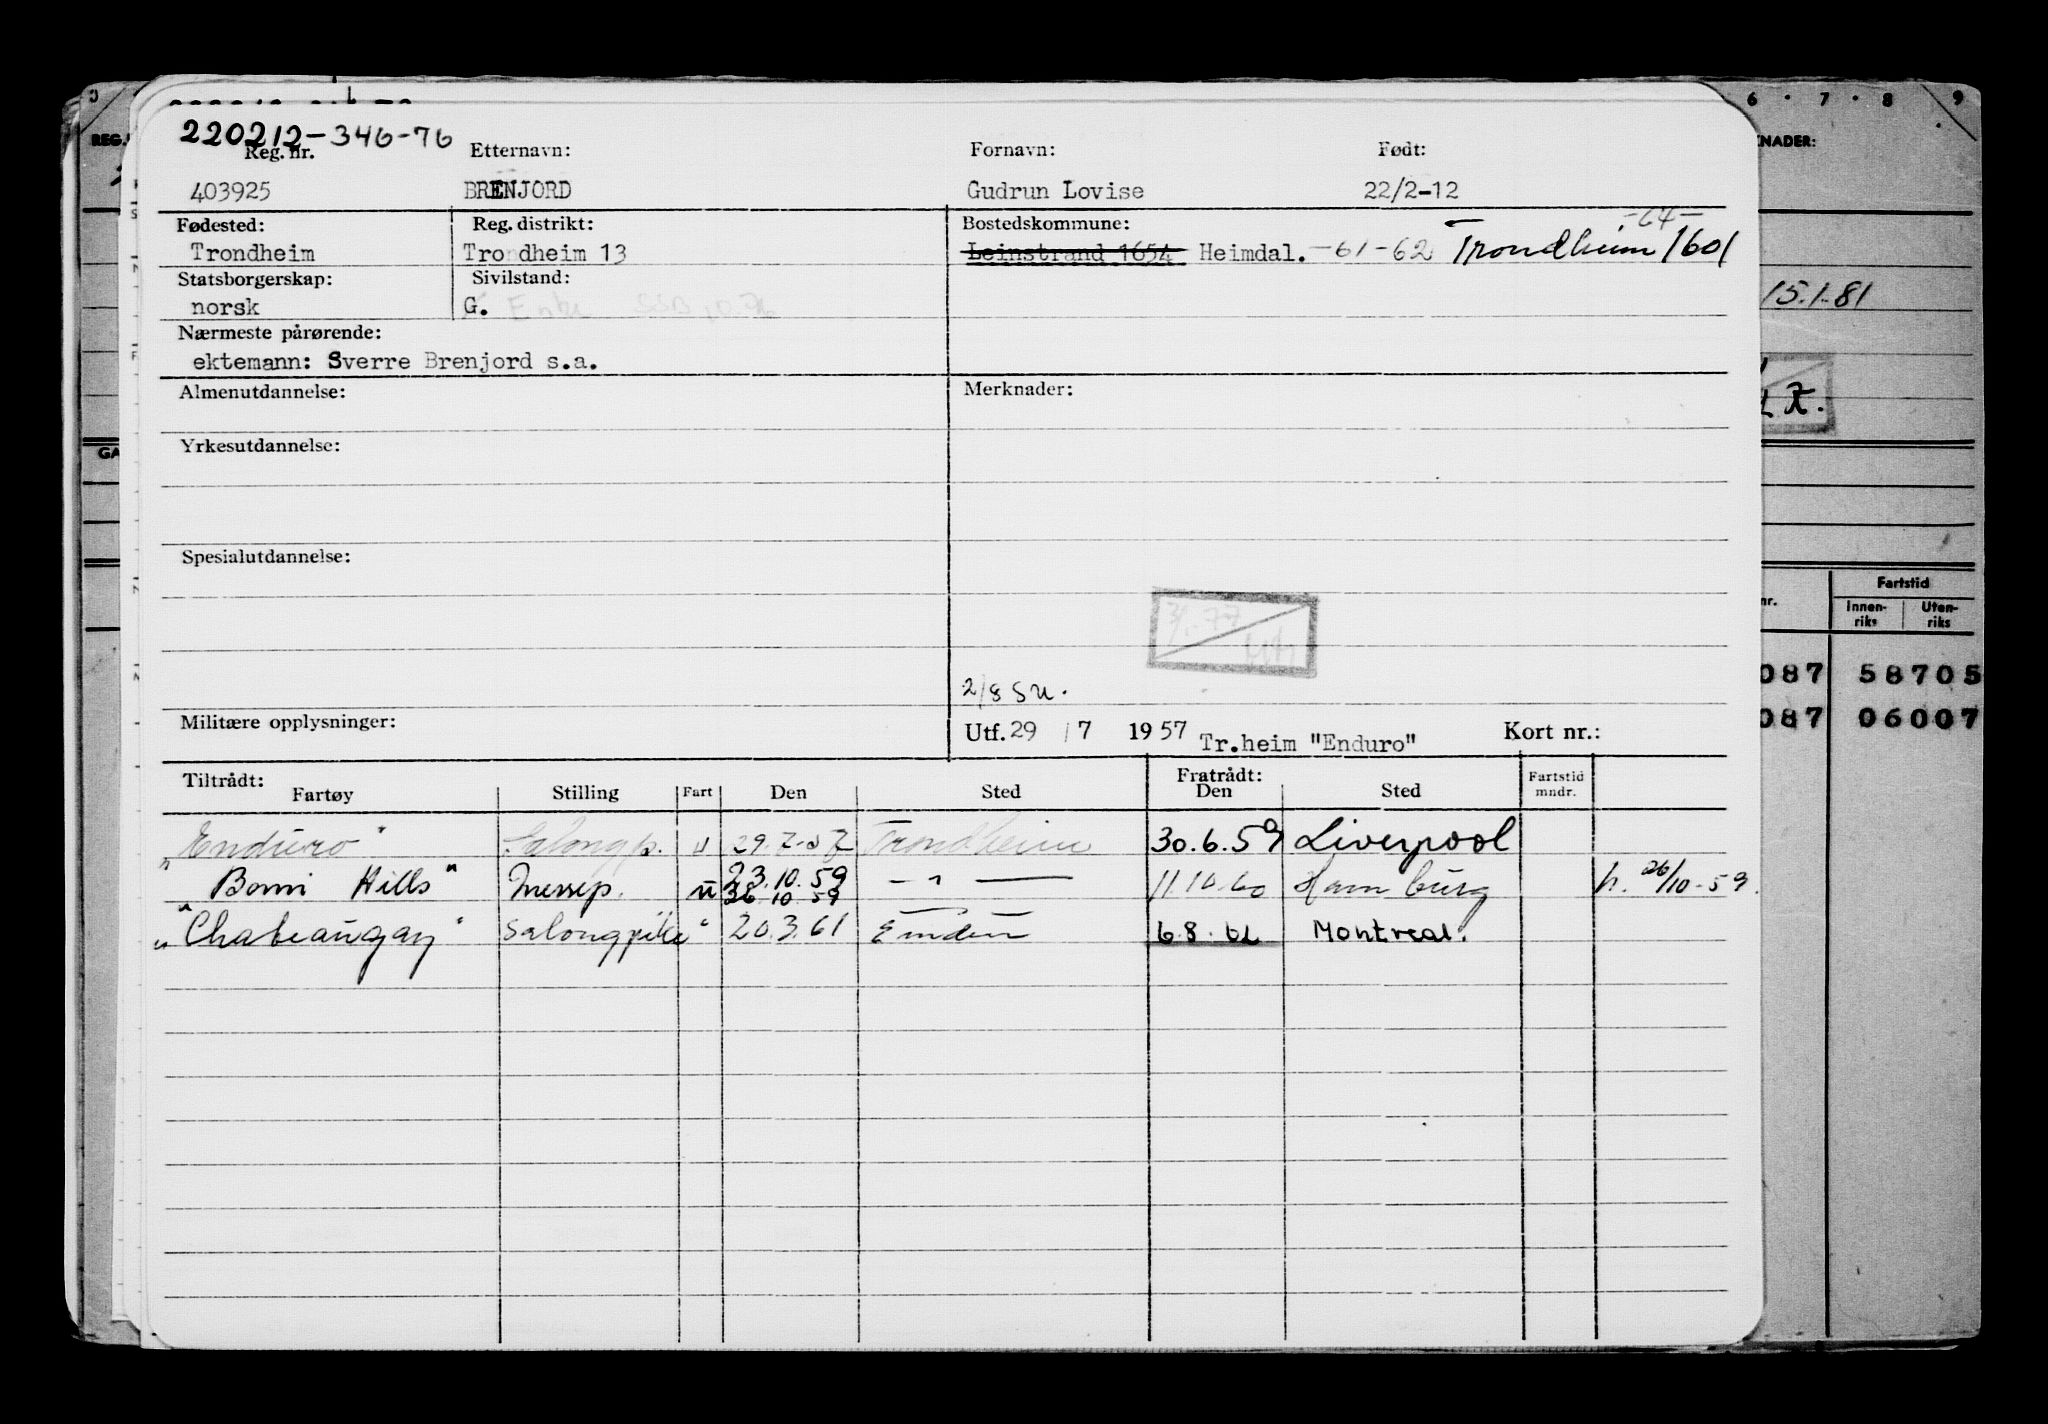 220212-346-76
Reg. nr. Etternavn: Fornavn: Født:
403925 BRENJORD Gudrun Lovise 22/2-12
Fødested: Reg. distrikt: Bostedskommune: -64-
Trondheim Trondheim 13 Leinstrand 1654 Heimdal. -61-62 Trondheim 1601
Statsborgerskap: Sivilstand:
norsk G. Enke SSB 10.76
Nærmeste pårørende:
ektemann: Sverre Brenjord s.a.
Almenutdannelse: Merknader:
Yrkesutdannelse:
Spesialutdannelse:
2/8 SU.
Militære opplysninger: Utf. 29/7 1957 Tr.heim "Enduro" Kort nr.:
Tiltrådt: Fratrådt:
Fartøy Stilling Fart Den Sted Den Sted Fartstid mndr.
"Enduro" Salongp. u 29.7.57 Trondheim 30.6.59 Liverpool
"Bomi Hills" Messep. u 23.10.59 - " - 11.10.60 Hamburg h. 26/10-59.
26.10.59
"Chateaugay" Salongpike " 20.3.61 Emden 6.8.62 Montreal.
0 6 · 7 · 8 9
REG. KNADER:
15.1.81
GA
Fartstid
nr. Innen-riks Uten-riks
087 58705
087 06007